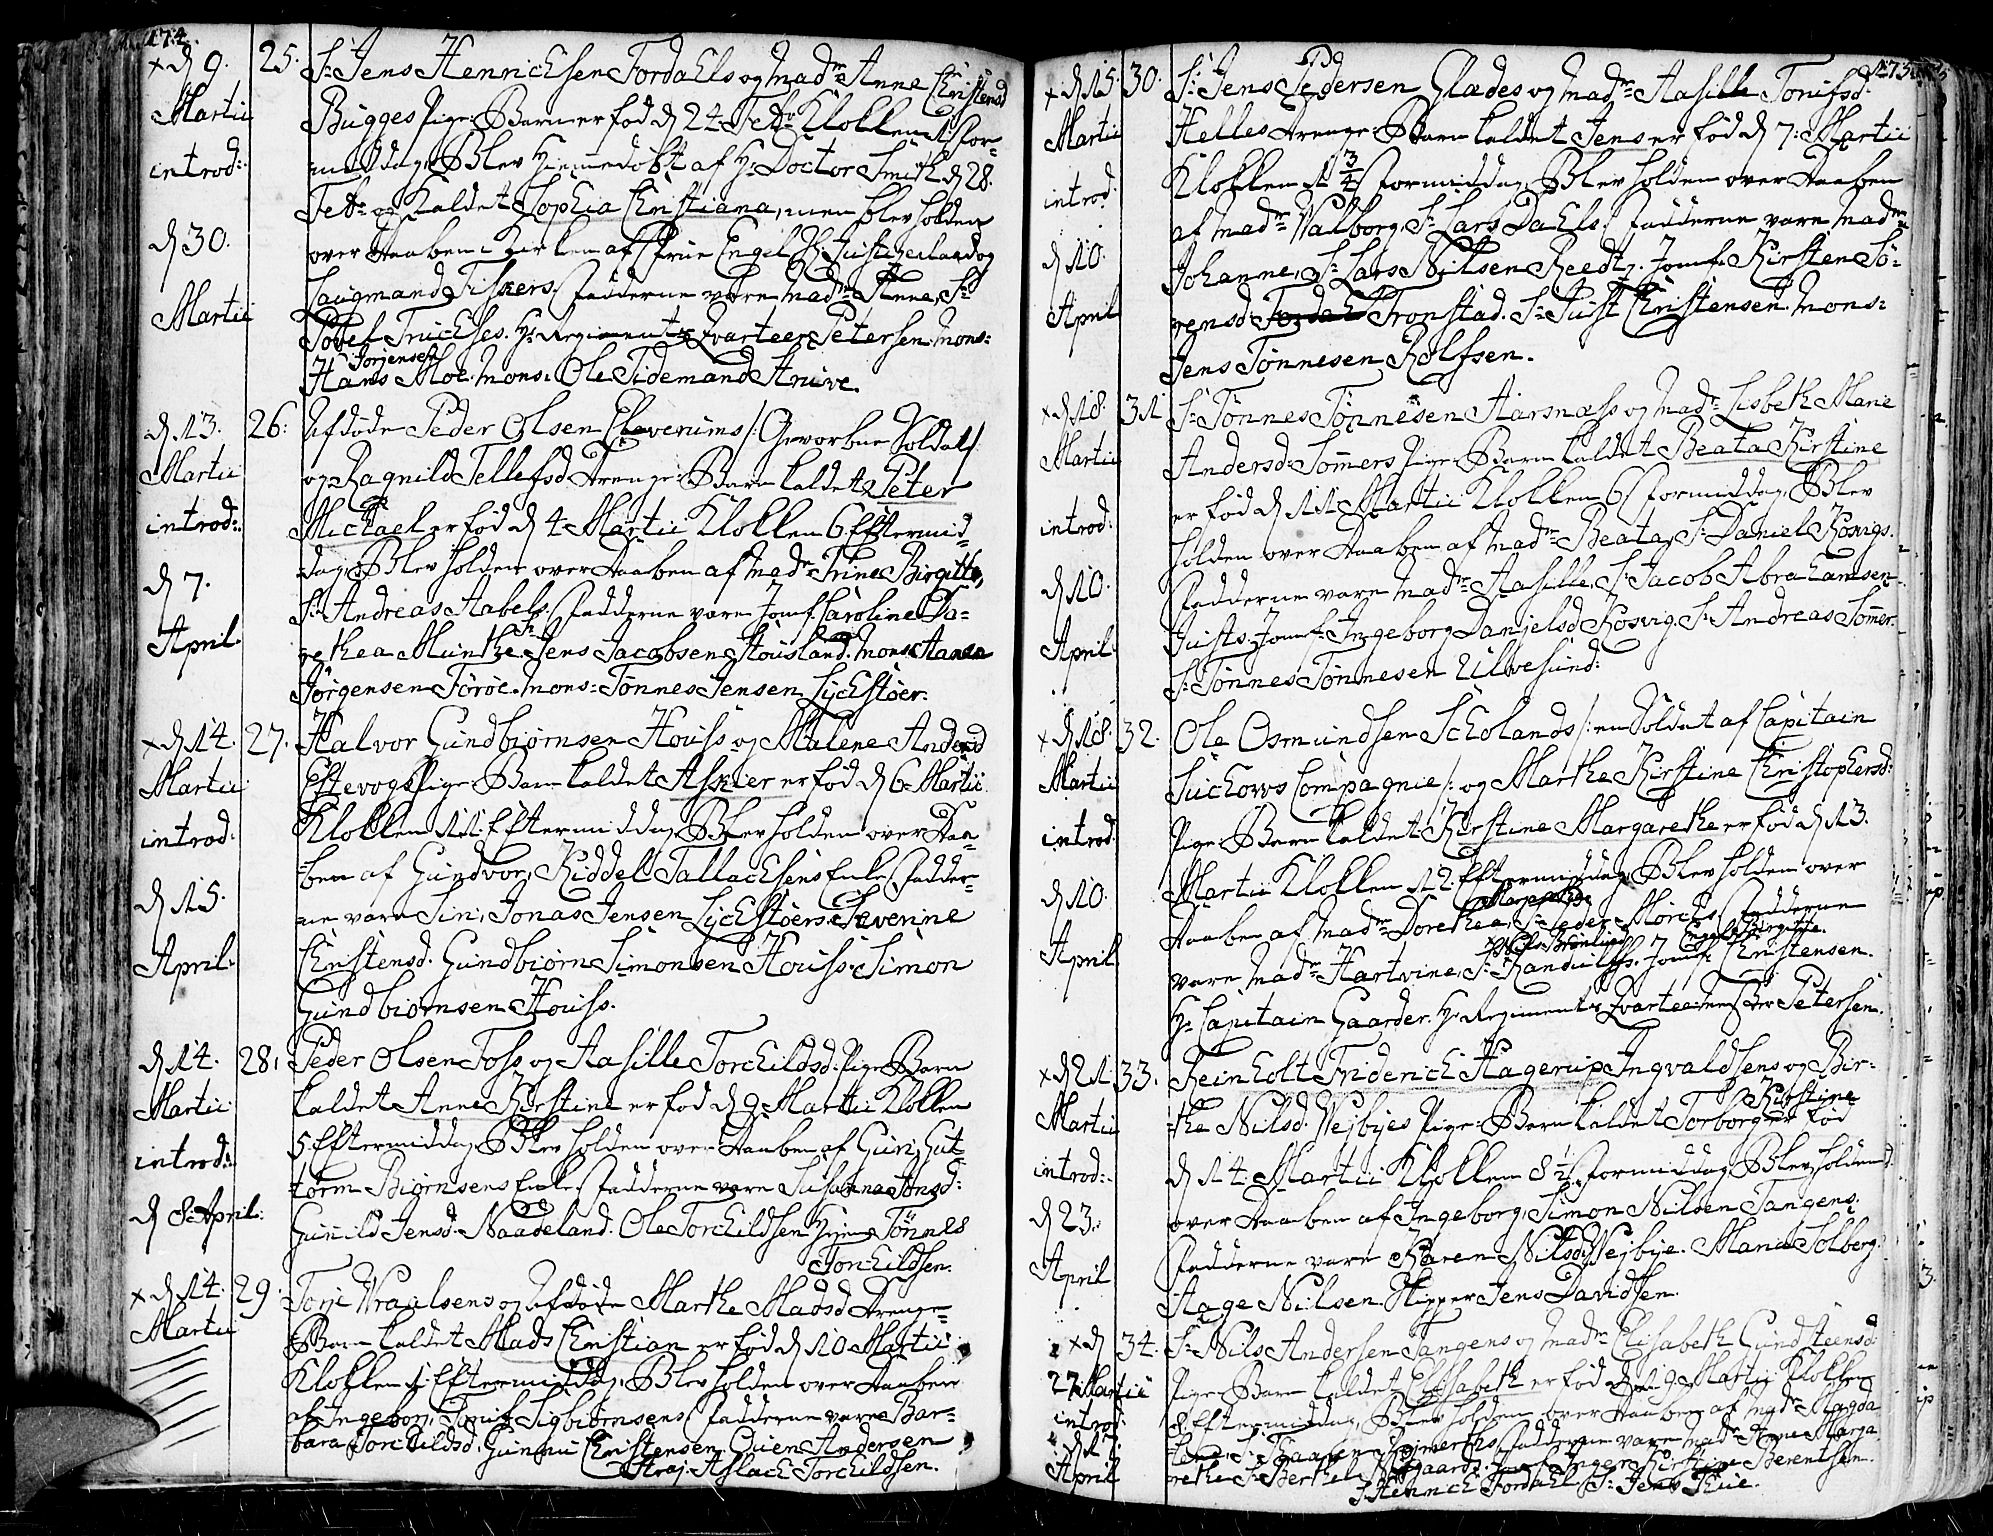 174.
x d 9. Martii introd: d 30. Martii
25. Sr Jens Henrichsen Fordahls og Madme Anne Christensd
Bugges Pige-Barn er fød d 24 Febr Klokken 1 For-
middag, Blev Hiemmedøbt af Hr Doctor Smith d 28.
Febr og Kaldet Sophia Christiana, men blev holden
over Daaben i Kirken af Frue Engel, Hr Justizeraad og
Laugmand Fiskers. Fadderne vare Madme Anne, Sr
Hr Regiments Qvarteer Petersen. Mons:
Hans Jørjensen Moe. Mons: Ole Tidemand
d 13. Martii introd: d 7. April
26. Afdøde Peder Olsen Cleverums /: Gevorben Soldat :/
og Ragnild Tellefsd Drenge-Barn kaldet Peter
Michael er fød d 4 Martii Klokken 6 Eftermid-
dag, Blev holden over Daaben af Madme Trine Birgitte,
Sr Andreas Aabels. Fadderne vare Jomf. Caroline Do-
rethea Munthe. Sr Jens Jacobsen Mons:
Jørgensen Førøe. Mons: Tønnes Jensen Lyckstøer.
x d 14. Martii introd: d 15. April
27. Halvor Gundbiørnsen Houss og Malene Andersd
Eftevogs Pige-Barn kaldet er fød d 6 Martii
Klokken 11 Eftermiddag, Blev holden over Daa-
ben af Gundvor, Kiddel Tallachsens Enke. Fadder-
ne vare Siri, Jonas Jensen Lyckstøers. Severine
Christensd. Gundbiørn Simonsen Houss. Simon
Gundbiørnsen Houss.
d 14. Martii introd: d 8 April:
28. Peder Olsen Foss og Aasille Torchildsd. Pige-Barn
kaldet Anne Kirstine er fød d 9 Martii Klokken
5 Eftermiddag, Blev holden over Daaben af Guri, Gut-
torm Biørnsens Enke. Fadderne vare Susanna Jonsd:
Gunild Jensd. Naadeland. Ole Torchildsen Tønnes
Torchildsen.
x d 14. Martii
29. Torje og Afdøde Marthe Madsd Drenge-
Barn kaldet Mads Christian er fød d 10 Martii
Klokken Eftermiddag, Blev holden over Daaben
af Ingeborg, Sigbiørnsens. Fadderne vare Bar-
bara Torchildsd. Christensen. Andersen
Aslach Torchildsen.
175.
x d 15 Martii introd: d 10. April
30. Sr Jens Pedersen Glades og Madme Aasille Tonisd:
Helles Drenge-Barn kaldet Jens er fød d 7: Martii
Klokken 11 3/4 Formiddag, Blev holden over Daaben
af Madme Walborg, Sr Lars Dahls. Fadderne vare Madme
Johanne, Sr Lars Nilsen Reedtz. Jomf: Kirsten Sø-
rensd: Tronstad. Sr Just Christensen. Mons:
Jens Tønnesen Rolfsen.
x d 18. Martii introd: d 10. April
31 Sr Tønnes Tønnesen Aarsnæss og Madme Lisbeth Marie
Andersd: Sommers Pige-Barn kaldet Beata Kirstine
er fød d 11 Martii Klokken 6 Formiddag, Blev
holden over Daaben af Madme Beata, Sr Daniel Kosvigs.
Fadderne vare Madme Aasille, Sr Jacob Abrahamsen
Justs. Jomf: Ingeborg Danjelsd Kosvig. Sr Andreas Sommer.
Sr Tønnes Tønnesen Ulvesund:
x d 18. Martii introd: d 10. April
32. Ole Osmundsen Scholands /: en Soldat af Capitain
Suchows Compagnie :/ og Marthe Kirstine Christophersd:
Pige-Barn kaldet Kirstine Margarethe er fød d 13.
Martii Klokken 12 Eftermiddag, Blev holden over
Daaben af Madme Dorethea, Sr Peder Mørchs. Fadderne
vare Madme Hartvine, Sr Jomf: Engel Birgitte Christensen.
Hr Capitain Gaarder. Hr Regiments Qvarteermester Petersen.
x d 21 Martii introd: d 23. April
33. Reinholt Friderich Hagerup Ingvaldsens og Bir-
the Nilsd. Vejbyes Pige-Barn kaldet Torborg Kirstine er fød
d 14 Martii Klokken 8 1/2 Formiddag, Blev holden
over Daaben af Ingeborg, Simon Nilsen Tangens.
Fadderne vare Karen Nilsd: Vejbye. Maria Solberg.
Aage Nilsen. Skipper Jens Davidsen.
x d 27 Martii introd: April
34. Sr Nils Andersen Tangens og Madme Elisabeth Gundsteensd
Pige-Barn kaldet Elisabeth er fød d 19 Martii Klokken
8 Eftermiddag, Blev holden over Daaben af Madme Magda-
lena, Fadderne vare Madme Anne Marga-
rethe, Sr Berthel Jomf. Inger Kirstine Berentsen.
Sr Henrich Fordahl. Sr Jens Thue.